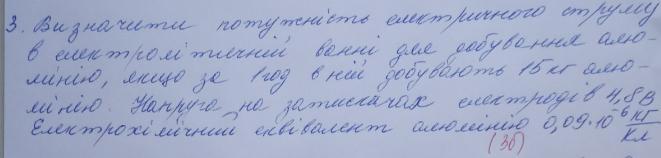 3. Визначити потужність електричного струму
в електролітичній ванні для добування алю-
мінію, якщо за 1 год в ній добувають 15 кг алю-
мінію. Напруга на затискачах електродів 4,8 В
Електрохімічний еквівалент алюмінію 0,09·10⁻⁶ кг/Кл
(3б)